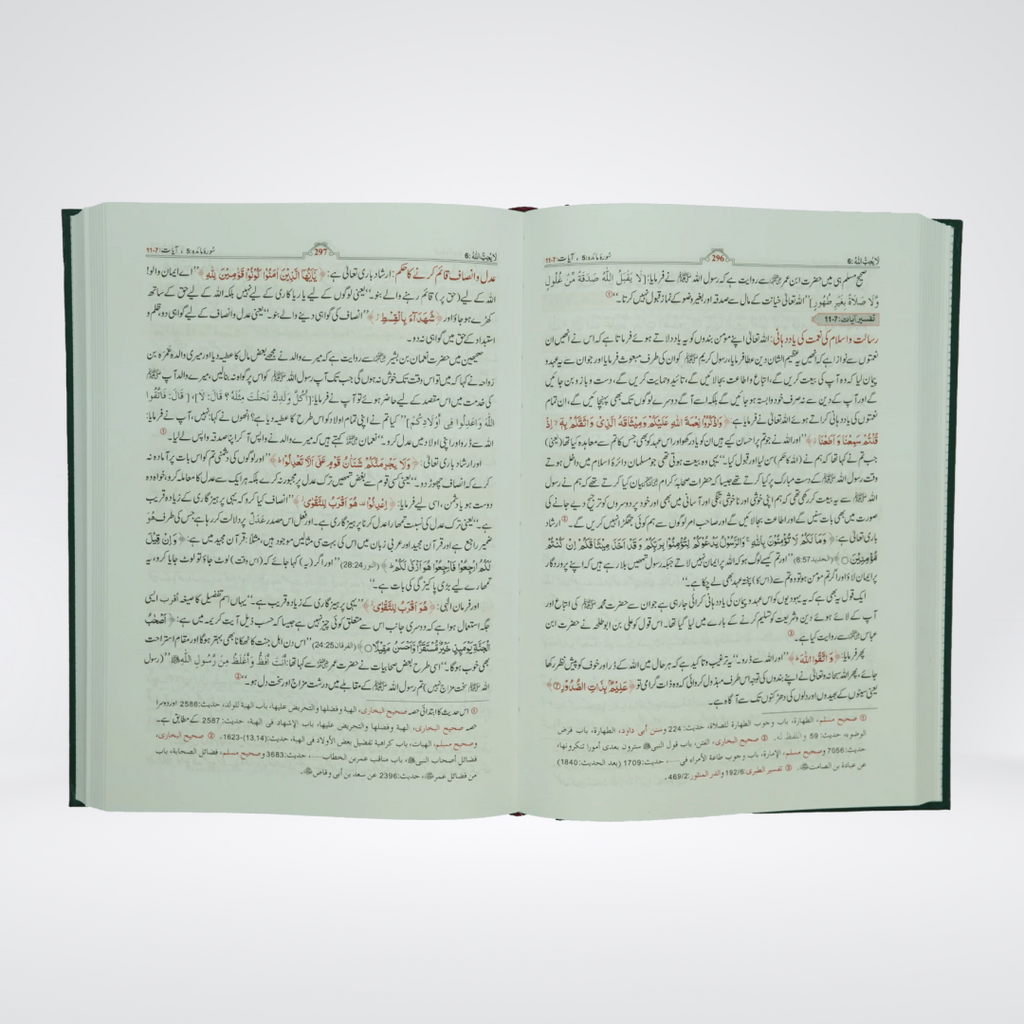 لَا یُحِبُّ اللّٰهُ: 6
296
سورۂ مائدہ: 5 ، آیات: 7-11
صحیح مسلم ہی میں حضرت ابن عمر سے روایت ہے کہ رسول اللہ ﷺ نے فرمایا: [لَا يَقْبَلُ اللّٰهُ صَدَقَةً مِّنْ غُلُولٍ
وَّلَا صَلَاةً بِغَيْرِ طُهُورٍ] ’’اللہ تعالیٰ خیانت کے مال سے صدقہ اور بغیر وضو کے نماز قبول نہیں کرتا۔‘‘ ①
تفسیر آیات: 7-11
رسالت و اسلام کی نعمت کی یاددہانی: اللہ تعالیٰ اپنے مومن بندوں کو یہ یاد دلاتے ہوئے فرماتا ہے کہ اس نے انھیں ان
نعمتوں سے نوازا ہے کہ انھیں یہ عظیم الشان دین عطا فرمایا، رسول کریم ﷺ کو ان کی طرف مبعوث فرمایا اور جو ان سے یہ عہد و
پیمان لیا کہ وہ آپ کی بیعت کریں گے، اتباع و اطاعت بجا لائیں گے، تائید و حمایت کریں گے، دست و بازو بن جائیں
گے اور آپ کے دین سے نہ صرف خود وابستہ ہو جائیں گے بلکہ اسے آگے دوسرے لوگوں تک بھی پہنچائیں گے، ان تمام
نعمتوں کی یاددہانی کراتے ہوئے اللہ تعالیٰ نے فرمایا ہے: ﴿وَاذْكُرُوْا نِعْمَةَ اللّٰهِ عَلَيْكُمْ وَمِيْثَاقَهُ الَّذِيْ وَاثَقَكُمْ بِهٖٓ اِذْ
قُلْتُمْ سَمِعْنَا وَاَطَعْنَا﴾ ’’اور اللہ نے جو تم پر احسان کیے ہیں ان کو یاد رکھو اور اس عہد کو بھی جس کا تم سے معاہدہ کیا تھا (یعنی)
جب تم نے کہا تھا کہ ہم نے (اللہ کا حکم) سن لیا اور قبول کیا۔‘‘ یہی وہ بیعت ہوتی تھی جو مسلمان دائرۂ اسلام میں داخل ہوتے
وقت رسول اللہ ﷺ کے دست مبارک پر کیا کرتے تھے جیسا کہ حضرات صحابہ کرام بیان کیا کرتے تھے کہ ہم نے رسول
اللہ ﷺ سے یہ بیعت کر رکھی تھی کہ ہم اپنی خوشی اور ناخوشی، تنگی اور آسانی میں بھی، اور خود پر دوسروں کو ترجیح دیے جانے کی
صورت میں بھی بات سنیں گے اور اطاعت بجا لائیں گے اور صاحب امر لوگوں سے ہم کوئی جھگڑا نہیں کریں گے۔ ② ارشاد
باری تعالیٰ ہے: ﴿وَمَا لَكُمْ لَا تُؤْمِنُوْنَ بِاللّٰهِ ۚ وَالرَّسُوْلُ يَدْعُوْكُمْ لِتُؤْمِنُوْا بِرَبِّكُمْ وَقَدْ اَخَذَ مِيْثَاقَكُمْ اِنْ كُنْتُمْ
مُّؤْمِنِيْنَ﴾ (الحديد 8:57) ’’اور تم کیسے لوگ ہو کہ اللہ پر ایمان نہیں لاتے جبکہ رسول تمھیں بلا رہے ہیں کہ اپنے پروردگار
پر ایمان لاؤ اور اگر تم مومن ہو تو وہ تم سے (اس کا) پختہ عہد بھی لے چکا ہے۔‘‘
ایک قول یہ بھی ہے کہ یہ یہودیوں کو اس عہد و پیمان کی یاددہانی کرائی جا رہی ہے جو ان سے حضرت محمد ﷺ کی اتباع اور
آپ کے لائے ہوئے دین و شریعت کو تسلیم کرنے کے بارے میں لیا گیا تھا۔ اس قول کو علی بن ابو طلحہ نے حضرت ابن
عباس سے روایت کیا ہے۔ ③
پھر فرمایا: ﴿وَاتَّقُوا اللّٰهَ﴾ ’’اور اللہ سے ڈرو۔‘‘ یہ ترغیب و تاکید ہے کہ ہر حال میں اللہ کے ڈر اور خوف کو پیش نظر رکھا
جائے، پھر اللہ سبحانہ وتعالیٰ نے اپنے بندوں کی توجہ اس طرف مبذول کروائی کہ وہ ذات گرامی تو ﴿عَلِيْمٌۢ بِذَاتِ الصُّدُوْرِ﴾
یعنی سینوں کے بھیدوں اور دلوں کی دھڑکنوں تک سے آگاہ ہے۔
① صحیح مسلم، الطهارة، باب وجوب الطهارة للصلاة، حديث: 224 وسنن أبي داود، الطهارة، باب فرض
الوضوء، حديث: 59 واللفظ له. ② صحيح البخاري، الفتن، باب قول النبي سترون بعدي أمورا تنكرونها،
حديث: 7056 وصحيح مسلم، الإمارة، باب وجوب طاعة الأمراء في ....، حديث: 1709 (بعد الحديث: 1840)
عن عبادة بن الصامت. ③ تفسير الطبري: 192/6 والدر المنثور: 469/2.
لَا یُحِبُّ اللّٰهُ: 6
297
سورۂ مائدہ: 5 ، آیات: 7-11
عدل و انصاف قائم کرنے کا حکم: ارشاد باری تعالیٰ ہے: ﴿يٰٓاَيُّهَا الَّذِيْنَ اٰمَنُوْا كُوْنُوْا قَوّٰمِيْنَ لِلّٰهِ﴾ ’’اے ایمان والو!
اللہ کے لیے (حق پر) قائم رہنے والے بنو۔‘‘ یعنی لوگوں کے لیے یا ریاکاری کے لیے نہیں بلکہ اللہ کے لیے حق کے ساتھ
کھڑے ہو جاؤ اور ﴿شُهَدَآءَ بِالْقِسْطِ﴾ ’’انصاف کی گواہی دینے والے بنو۔‘‘ یعنی عدل و انصاف کے لیے گواہی دو، ظلم و
استبداد کے حق میں گواہی نہ دو۔
صحیحین میں حضرت نعمان بن بشیر سے روایت ہے کہ میرے والد نے مجھے بعض مال کا عطیہ دیا اور میری والدہ عمرہ بن
رواحہ نے کہا کہ میں تو اس وقت تک خوش نہ ہوں گی جب تک آپ رسول اللہ ﷺ کو اس پر گواہ نہ بنا لیں، میرے والد آپ ﷺ
کی خدمت میں اس مقصد کے لیے حاضر ہوئے تو آپ نے فرمایا: [أَكُلَّ وَلَدِكَ نَحَلْتَ مِثْلَهُ؟ قَالَ: لَا]، [قَالَ: فَاتَّقُوا
اللّٰهَ وَاعْدِلُوا فِي أَوْلَادِكُمْ] ’’کیا تم نے اپنی تمام اولاد کو اس طرح کا عطیہ دیا ہے؟ انھوں نے کہا: نہیں، آپ نے فرمایا:
اللہ سے ڈرو اور اپنی اولاد میں عدل کرو۔‘‘ نعمان کہتے ہیں کہ میرے والد نے واپس آ کر اپنا صدقہ واپس لے لیا۔ ①
اور ارشاد باری تعالیٰ: ﴿وَلَا يَجْرِمَنَّكُمْ شَنَاٰنُ قَوْمٍ عَلٰٓى اَلَّا تَعْدِلُوْا﴾ ’’اور لوگوں کی دشمنی تم کو اس بات پر آمادہ نہ
کرے کہ انصاف چھوڑ دو۔‘‘ یعنی کسی قوم سے بغض تمھیں ترک عدل پر مجبور نہ کرے بلکہ ہر ایک سے عدل کا معاملہ کرو، خواہ وہ
دوست ہو یا دشمن، اسی لیے فرمایا: ﴿اِعْدِلُوْا هُوَ اَقْرَبُ لِلتَّقْوٰى﴾ ’’انصاف کیا کرو کہ یہی پرہیزگاری کے زیادہ قریب
ہے۔‘‘ یعنی ترک عدل کی نسبت تمھارا عدل کرنا پرہیزگاری ہے۔ اور فعل اس مصدر عدل پر دلالت کر رہا ہے جس کی طرف هُوَ
ضمیر راجع ہے اور قرآن مجید اور عربی زبان میں اس کی بہت سی مثالیں موجود ہیں، مثلاً: قرآن مجید میں ہے: ﴿وَاِنْ قِيْلَ
لَكُمُ ارْجِعُوْا فَارْجِعُوْا هُوَ اَزْكٰى لَكُمْ﴾ (النور 28:24) ’’اور اگر (یہ) کہا جائے کہ (اس وقت) لوٹ جاؤ تو لوٹ جایا کرو، یہ
تمھارے لیے بڑی پاکیزگی کی بات ہے۔‘‘
اور فرمان الٰہی: ﴿هُوَ اَقْرَبُ لِلتَّقْوٰى﴾ ’’یہی پرہیزگاری کے زیادہ قریب ہے۔‘‘ یہاں اسم تفضیل کا صیغہ اَقْرَبُ ایسی
جگہ استعمال ہوا ہے کہ دوسری جانب اس سے متعلق کوئی چیز نہیں ہے جیسا کہ حسب ذیل آیت کریمہ میں ہے: ﴿اَصْحٰبُ
الْجَنَّةِ يَوْمَىِٕذٍ خَيْرٌ مُّسْتَقَرًّا وَّاَحْسَنُ مَقِيْلًا﴾ (الفرقان 24:25) ’’اس دن اہل جنت کا ٹھکانا بھی بہتر ہو گا اور مقام استراحت
بھی خوب ہو گا۔‘‘ اسی طرح بعض صحابیات نے حضرت عمر سے کہا تھا: أَنْتَ أَفَظُّ وَأَغْلَظُ مِنْ رَّسُولِ اللّٰهِ ﷺ ’’(رسول
اللہ ﷺ سخت مزاج نہیں) تم رسول اللہ ﷺ کے مقابلے میں درشت مزاج اور سخت دل ہو۔‘‘ ②
① اس حدیث کا ابتدائی حصہ صحيح البخاري، الهبة وفضلها والتحريض عليها، باب الهبة للولد، حديث: 2586 اور دوسرا
حصہ صحيح البخاري، الهبة وفضلها والتحريض عليها، باب الإشهاد في الهبة، حديث: 2587 کے مطابق ہے۔
وصحيح مسلم، الهبات، باب كراهية تفضيل بعض الأولاد في الهبة، حديث: (13,14)-1623. ② صحيح البخاري،
فضائل أصحاب النبي، باب مناقب عمر بن الخطاب ....، حديث: 3683 وصحيح مسلم، فضائل الصحابة، باب
من فضائل عمر، حديث: 2396 عن سعد بن أبي وقاص.